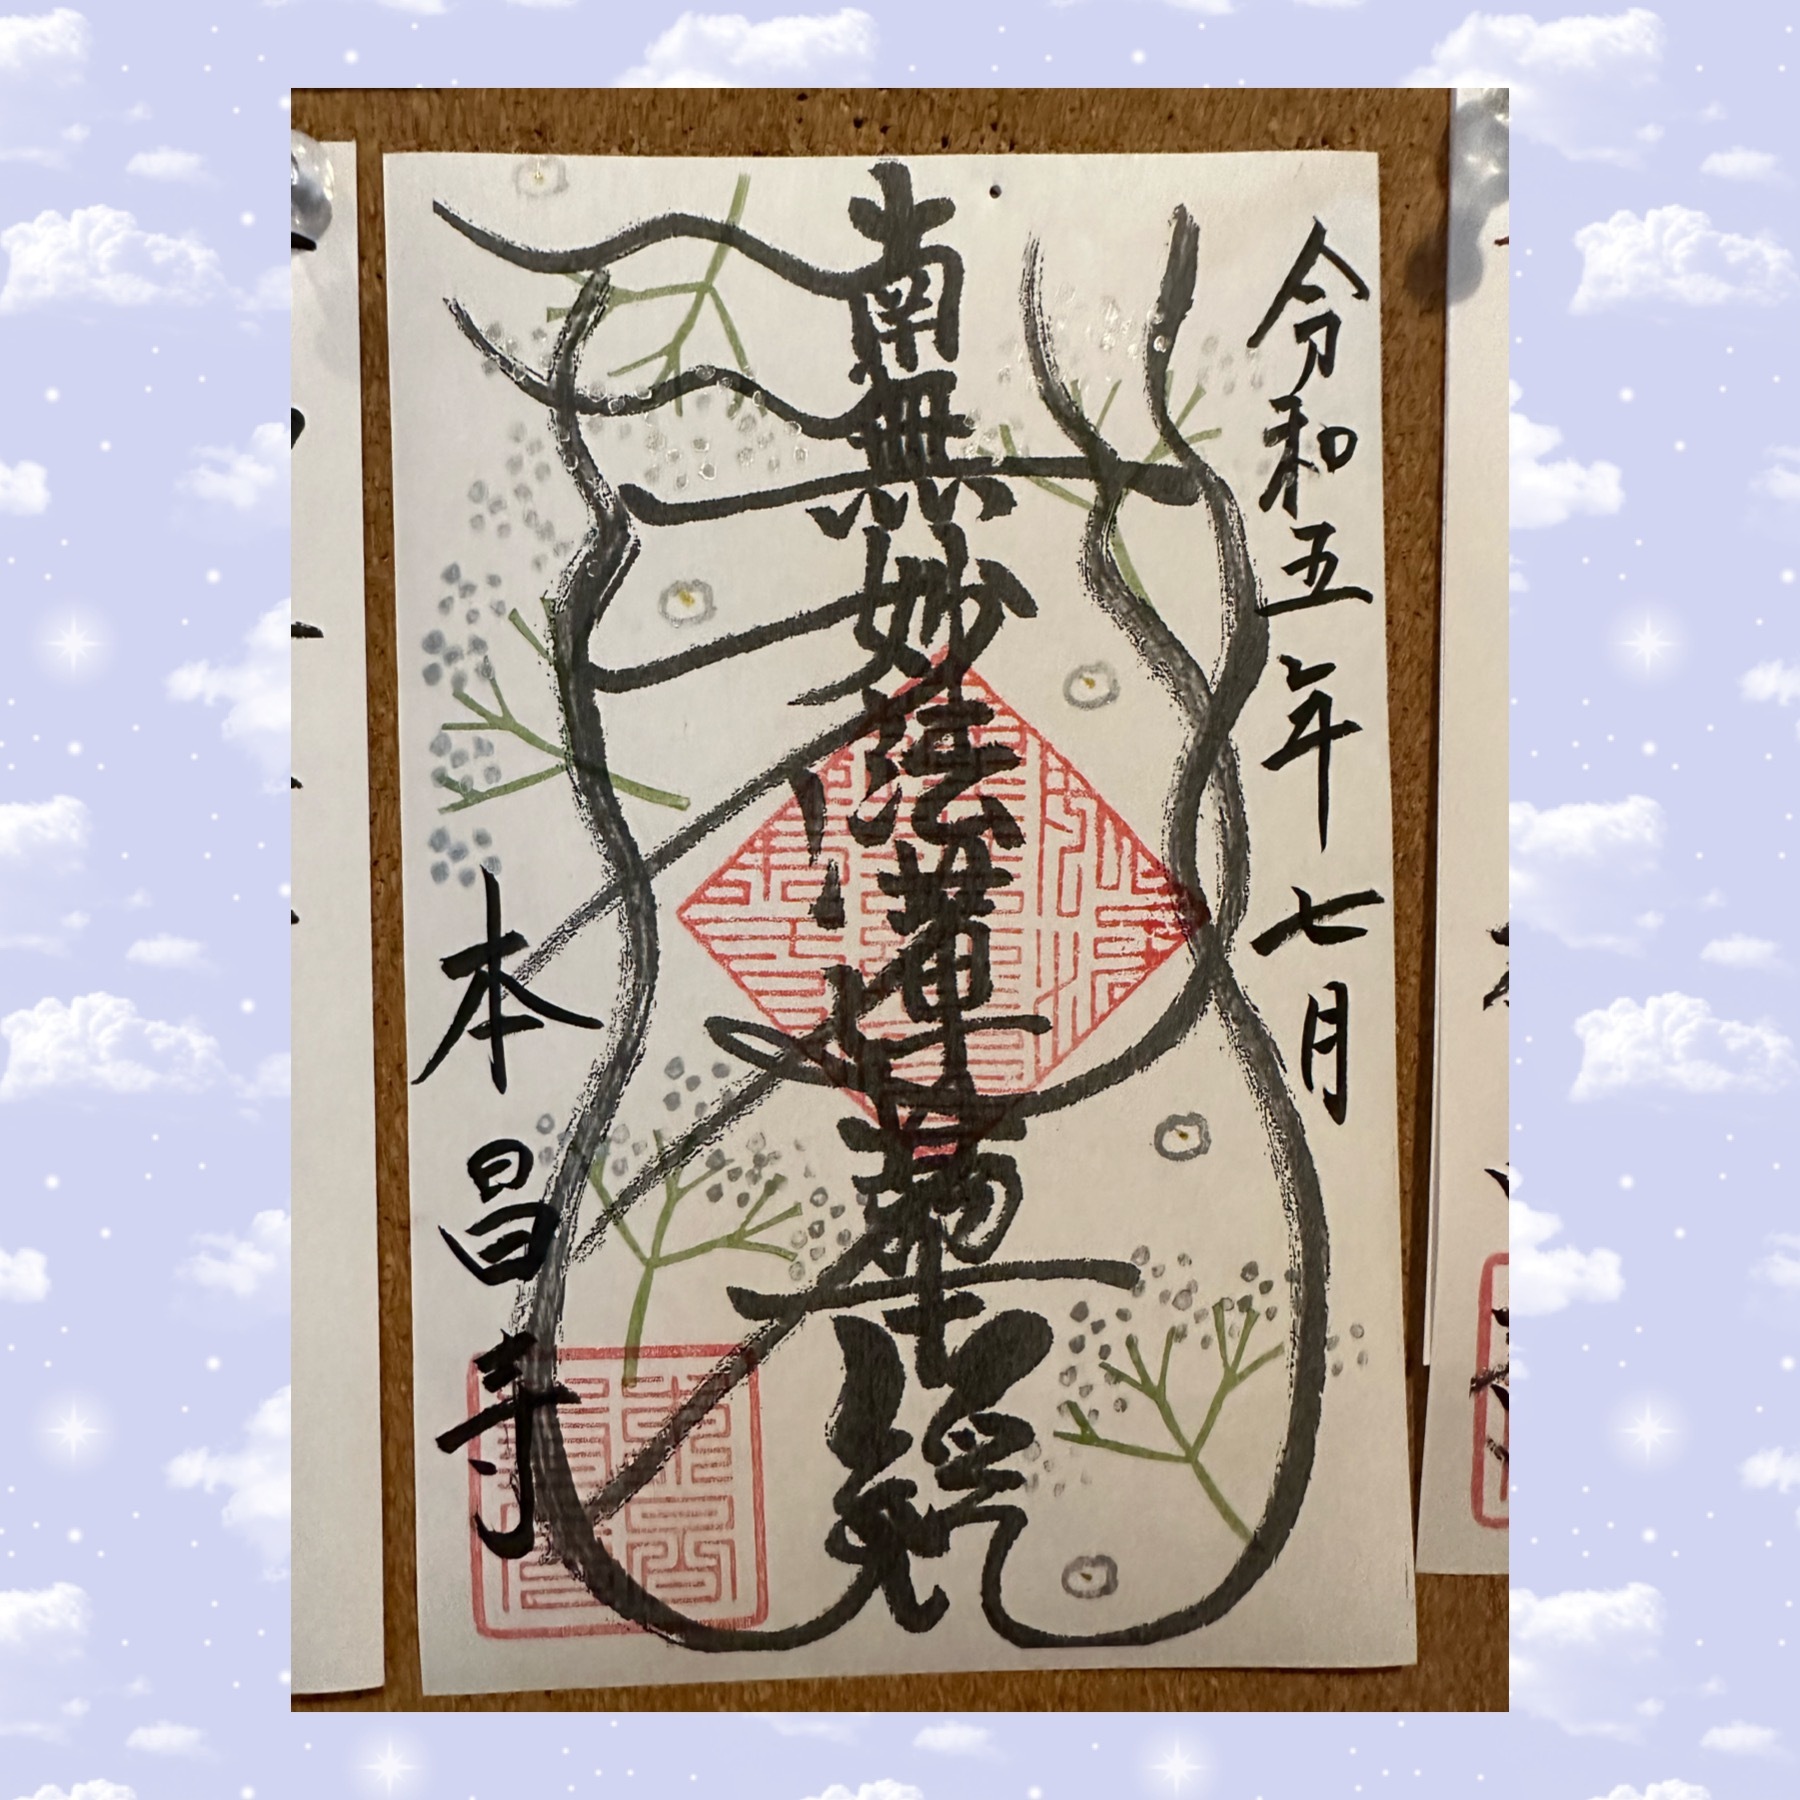 令和五年七月
南無妙法蓮華経
本昌寺